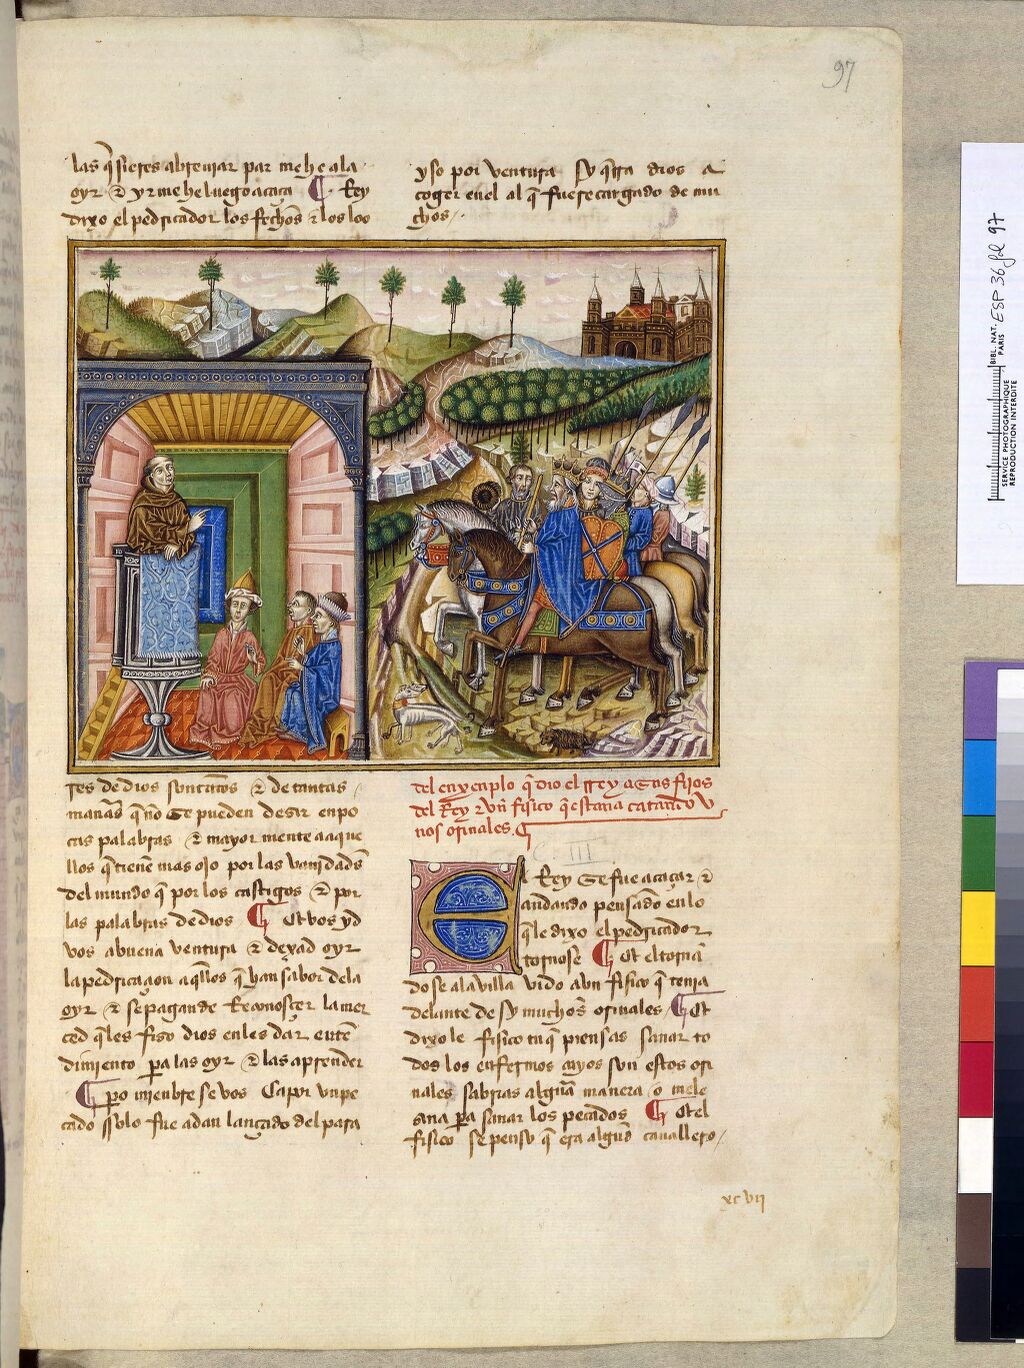 97
las q̃ sieres abreuiar par me he a la
oyr & yrme he luego a caça ¶ Rey
dixo el pedricador los fechos & los loo
res de dios son tantos & de tantas
manãs q̃ no se pueden desir en po
cas palabras & mayor mente a aque
llos q̃ tiene mas ojo por las vanidades
del mundo q̃ por los castigos & por
las palabras de dios ¶ Et vos yd
vos a buena ventura & dexad oyr
la pedricaçion a q̃llos q̃ han sabor dela
oyr & se pagan de Reconosçer la mer
ced q̃ les fiso dios en les dar entẽ
dimiento pa las oyr & las aprender
¶ pero mienbre se vos Ca por vn pe
cado solo fue adan lançado del para
yso por ventura sy q̃rra dios a
coger en el al q̃ fuese cargado de mu
chos
del enxenplo q̃ dio el rrey a sus fijos
del Rey & vn fisico q̃ estaua catando v
nos orinales ¶
C III
El Rey se fue a caçar &
andando pensado en lo
q̃ le dixo el pedricador
tornose ¶ Et el torna
do se a la villa vido a vn fisico q̃ tenia
delante de sy muchos orinales ¶ Et
dixo le fisico tu q̃ piensas sanar to
dos los enfermos cuyos son estos ori
nales sabrias algũa manera o mele
sina pa sanar los pecados ¶ Et el
fisico se penso q̃ era algũd cauallero
xcvii
BIBL. NAT.
PARIS
ESP 36 fol 97
SERVICE PHOTOGRAPHIQUE
REPRODUCTION INTERDITE